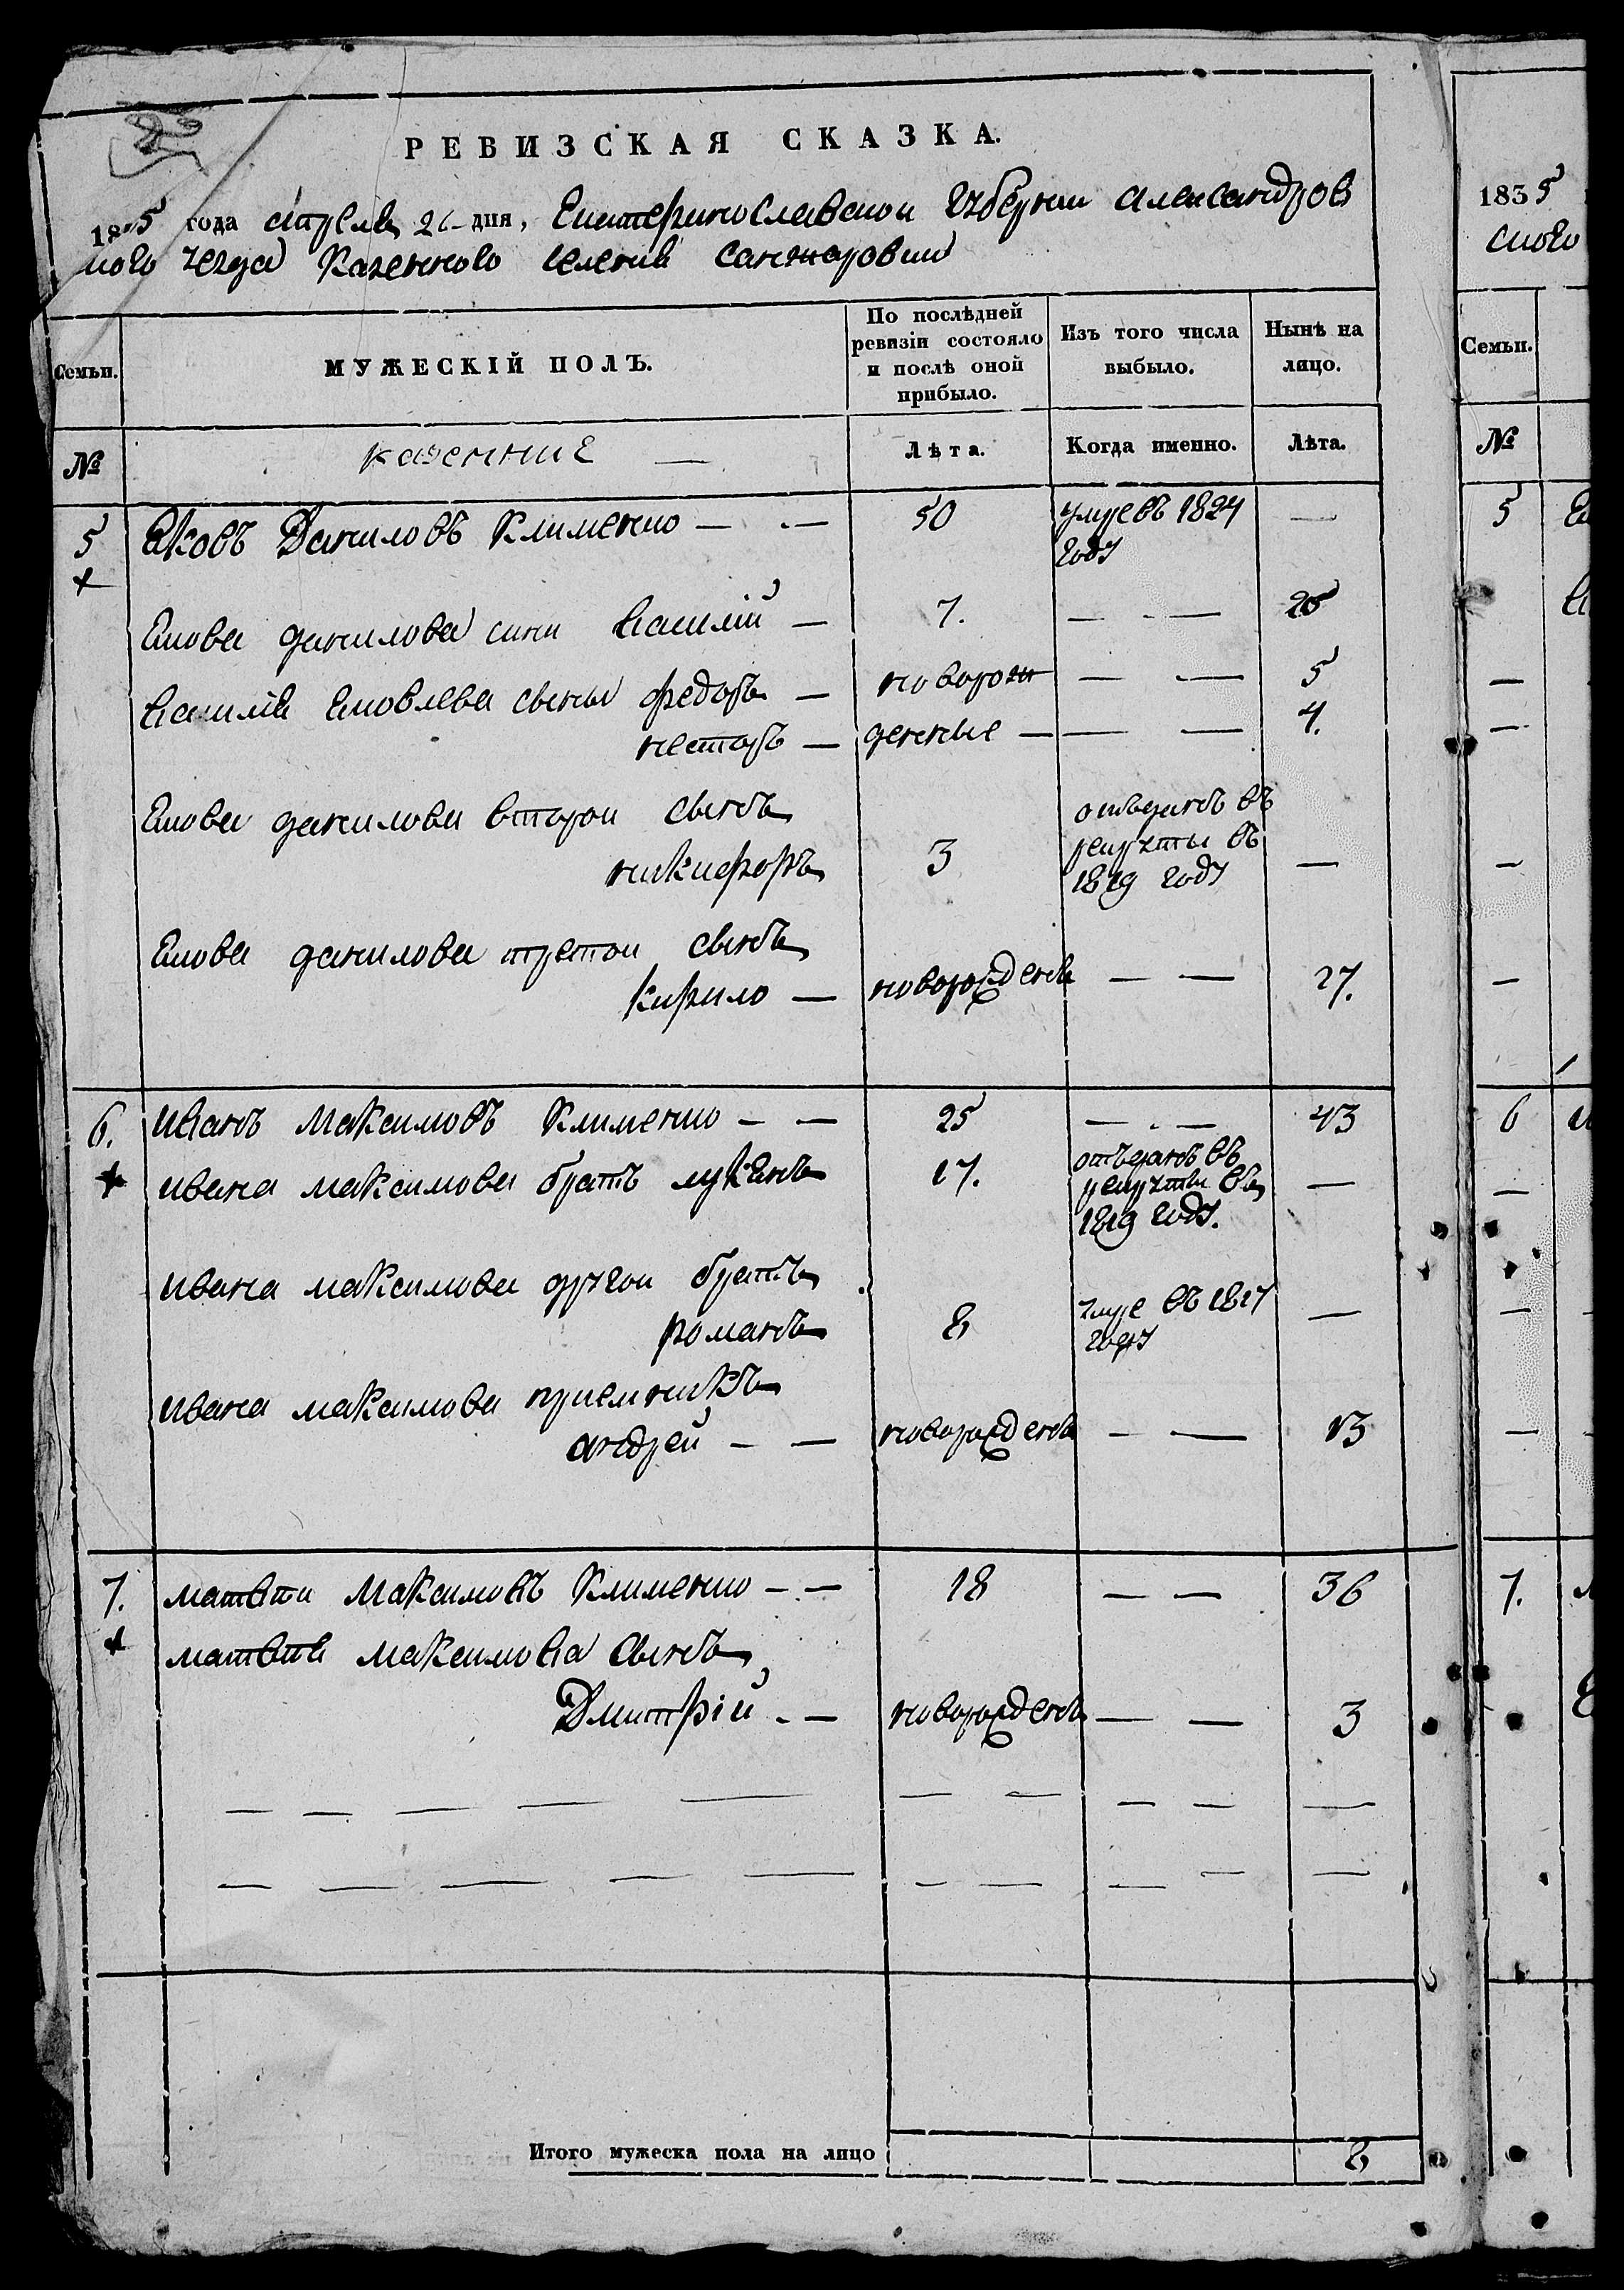 РЕВИЗСКАЯ СКАЗКА.
1835 года апреля 26 дня, Екатеринославской губернии александров
ского уезда Казенного селения санжаровки
Семьи.
МУЖЕСКІЙ ПОЛЪ.
По послѣдней ревизіи состояло и послѣ оной прибыло.
Изъ того числа выбыло.
Нынѣ на лицо.
№
казенние
Лѣта.
Когда именно.
Лѣта.
5 Яковъ Даниловъ Клименко — — 50 умре въ 1824 —
году
Якова данилова сини василій — 7. — — 25
василія Яковлева сыны федоръ — новорож — — 5
несторъ — денные — — — 4.
Якова данилова второи сынъ отъданъ въ
никифоръ 3 рекруты въ —
1819 году
Якова данилова третои сынъ
кирило — новорожденъ — — 27.
6. иванъ Максимовъ Клименко — — 25 — — 43
ивана максимова братъ лукянъ 17. отъданъ въ —
рекруты въ
1819 году.
ивана максимова другои братъ
романъ 8 умре въ 1817 —
году
ивана максимова приемникъ
андрей — — новорожденъ — — 13
7. матвѣи Максимовъ Клименко — — 18 — — 36
матвѣя максимова сынъ
Дмитрій — новорожденъ — — 3
Итого мужеска пола на лицо 8
1835
ского
Семьи.
№
5
6
7.